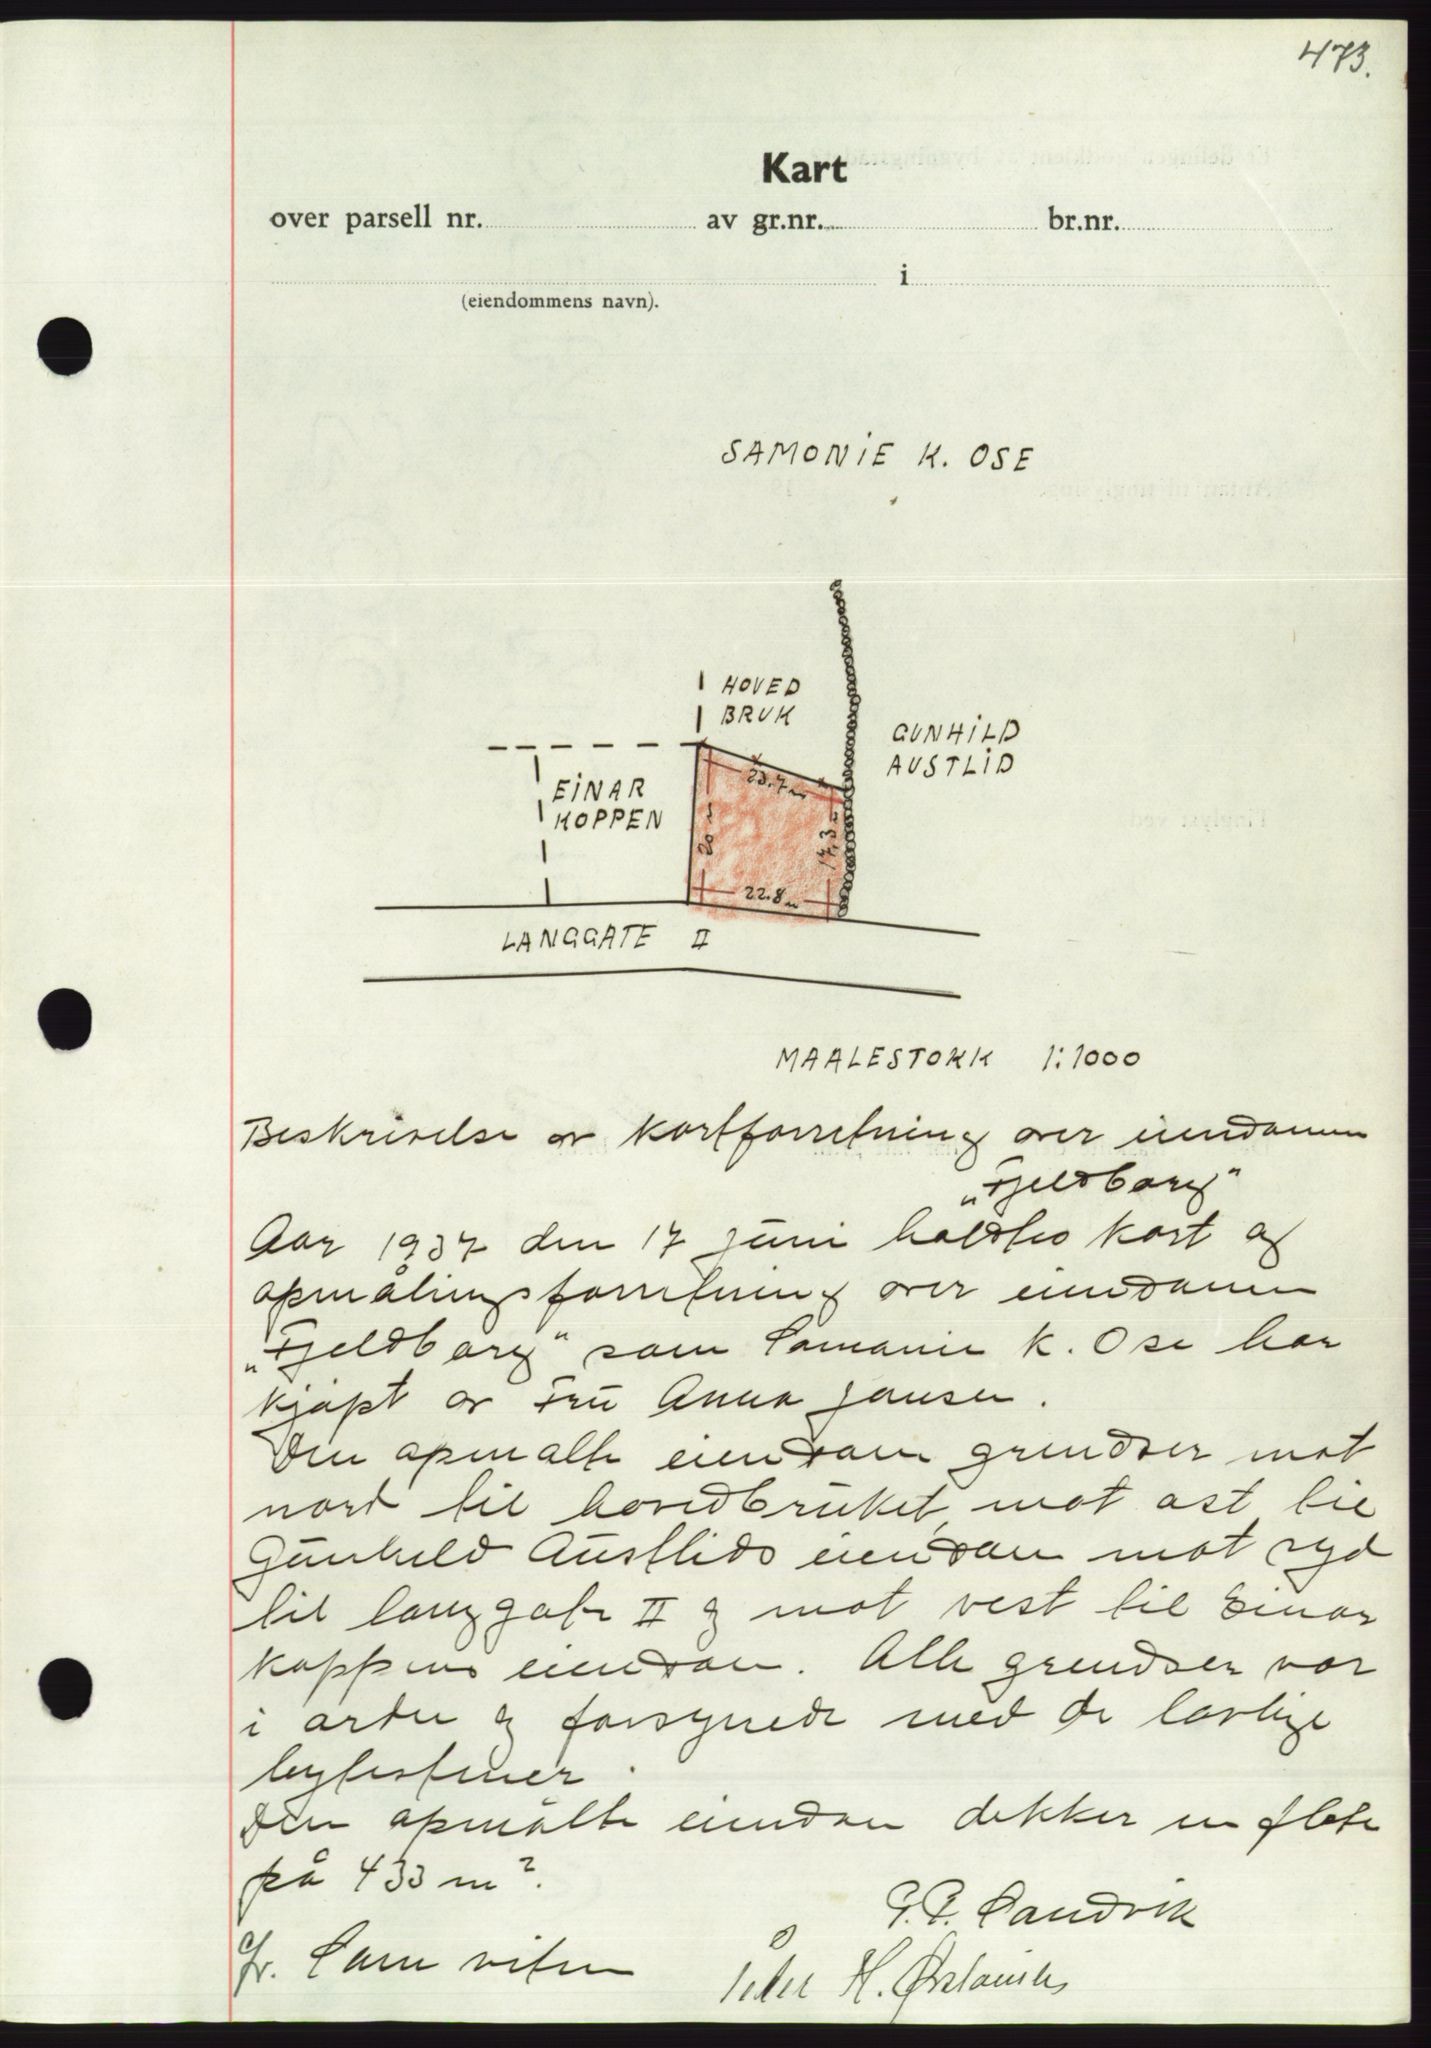 473.
Kart
over parsell nr. av gr.nr. br.nr.
i
(eiendommens navn).
SAMONIE K. OSE
HOVED
BRUK
GUNHILD
AUSTLID
EINAR
KOPPEN
23.7 m
20 m
17,3 m
22.8 m
LANGGATE II
MAALESTOKK 1:1000
Beskrivelse av kartforretning over eiendommen
„Fjeldborg"
Aar 1937 den 17 juni holdtes kart og
opmålingsforretning over eiendommen
„Fjeldborg" som Samonie K. Ose har
kjøpt av Fru Anna Jansen.
Den opmålte eiendom grendser mot
nord til hovedbruket, mot øst til
Gunhild Austlids eiendom mot syd
til langgate II og mot vest til Einar
Koppens eiendom. Alle grendser var
i orden og forsynede med de lovlige
bytestener.
Den opmålte eiendom dekker en flate
på 433 m².
P. P. Sandvik
Som viten
Peder H.